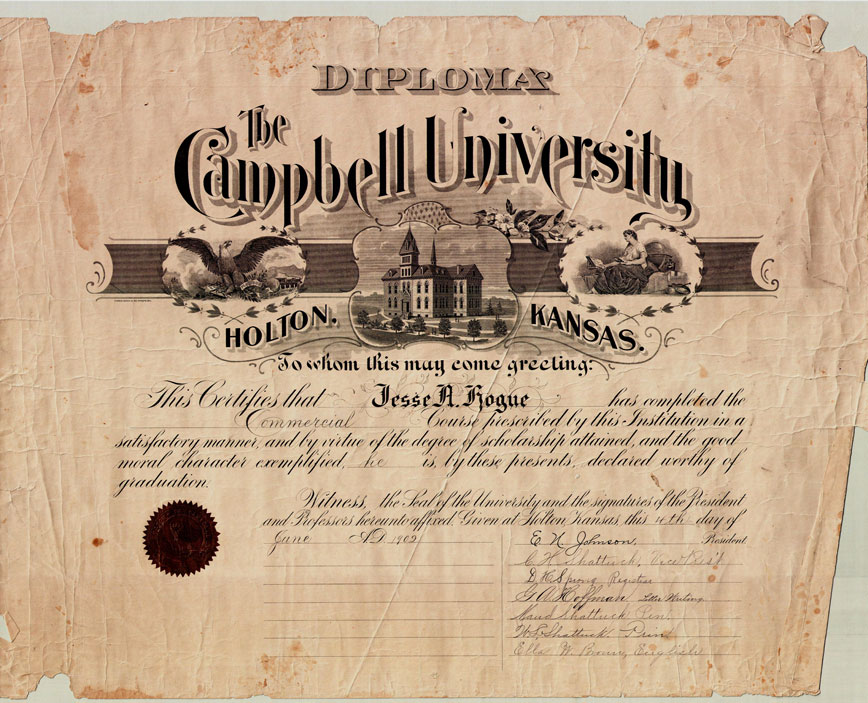 DIPLOMA
The
Campbell University
HOLTON. KANSAS.
To whom this may come greeting:
This Certifies that Jesse A. Hogue has completed the
Commercial Course prescribed by this Institution in a
satisfactory manner, and by virtue of the degree of scholarship attained, and the good
moral character exemplified, he is, by these presents, declared worthy of
graduation.
Witness, the Seal of the University and the signatures of the President
and Professors hereunto affixed. Given at Holton Kansas this 10th day of
June A.D. 1902
E. N. Johnson, President
E. H. Shattuck, Vice Pres't
D. H. Spong Register
G. A. Hoffman Letter Writing
Maud Shattuck Pen.
W. L. Shattuck Prin
Ella W. Brown, English